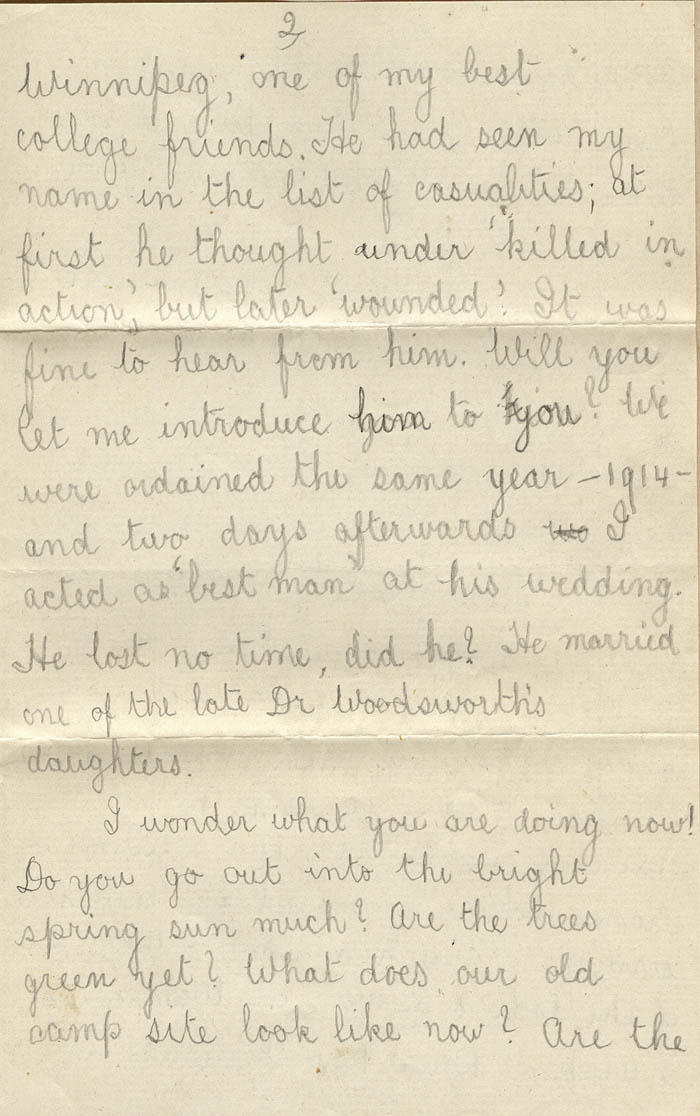 2
Winnipeg, one of my best
college friends. He had seen my
name in the list of casualities; at
first he thought under 'killed in
action', but later 'wounded'. It was
fine to hear from him. Will you
let me introduce him to you? We
were ordained the same year – 1914 –
and two days afterwards I
acted as "best man" at his wedding.
He lost no time, did he? He married
one of the late Dr Woodsworth's
daughters.
I wonder what you are doing now!
Do you go out into the bright
spring sun much? Are the trees
green yet? What does our old
camp site look like now? Are the